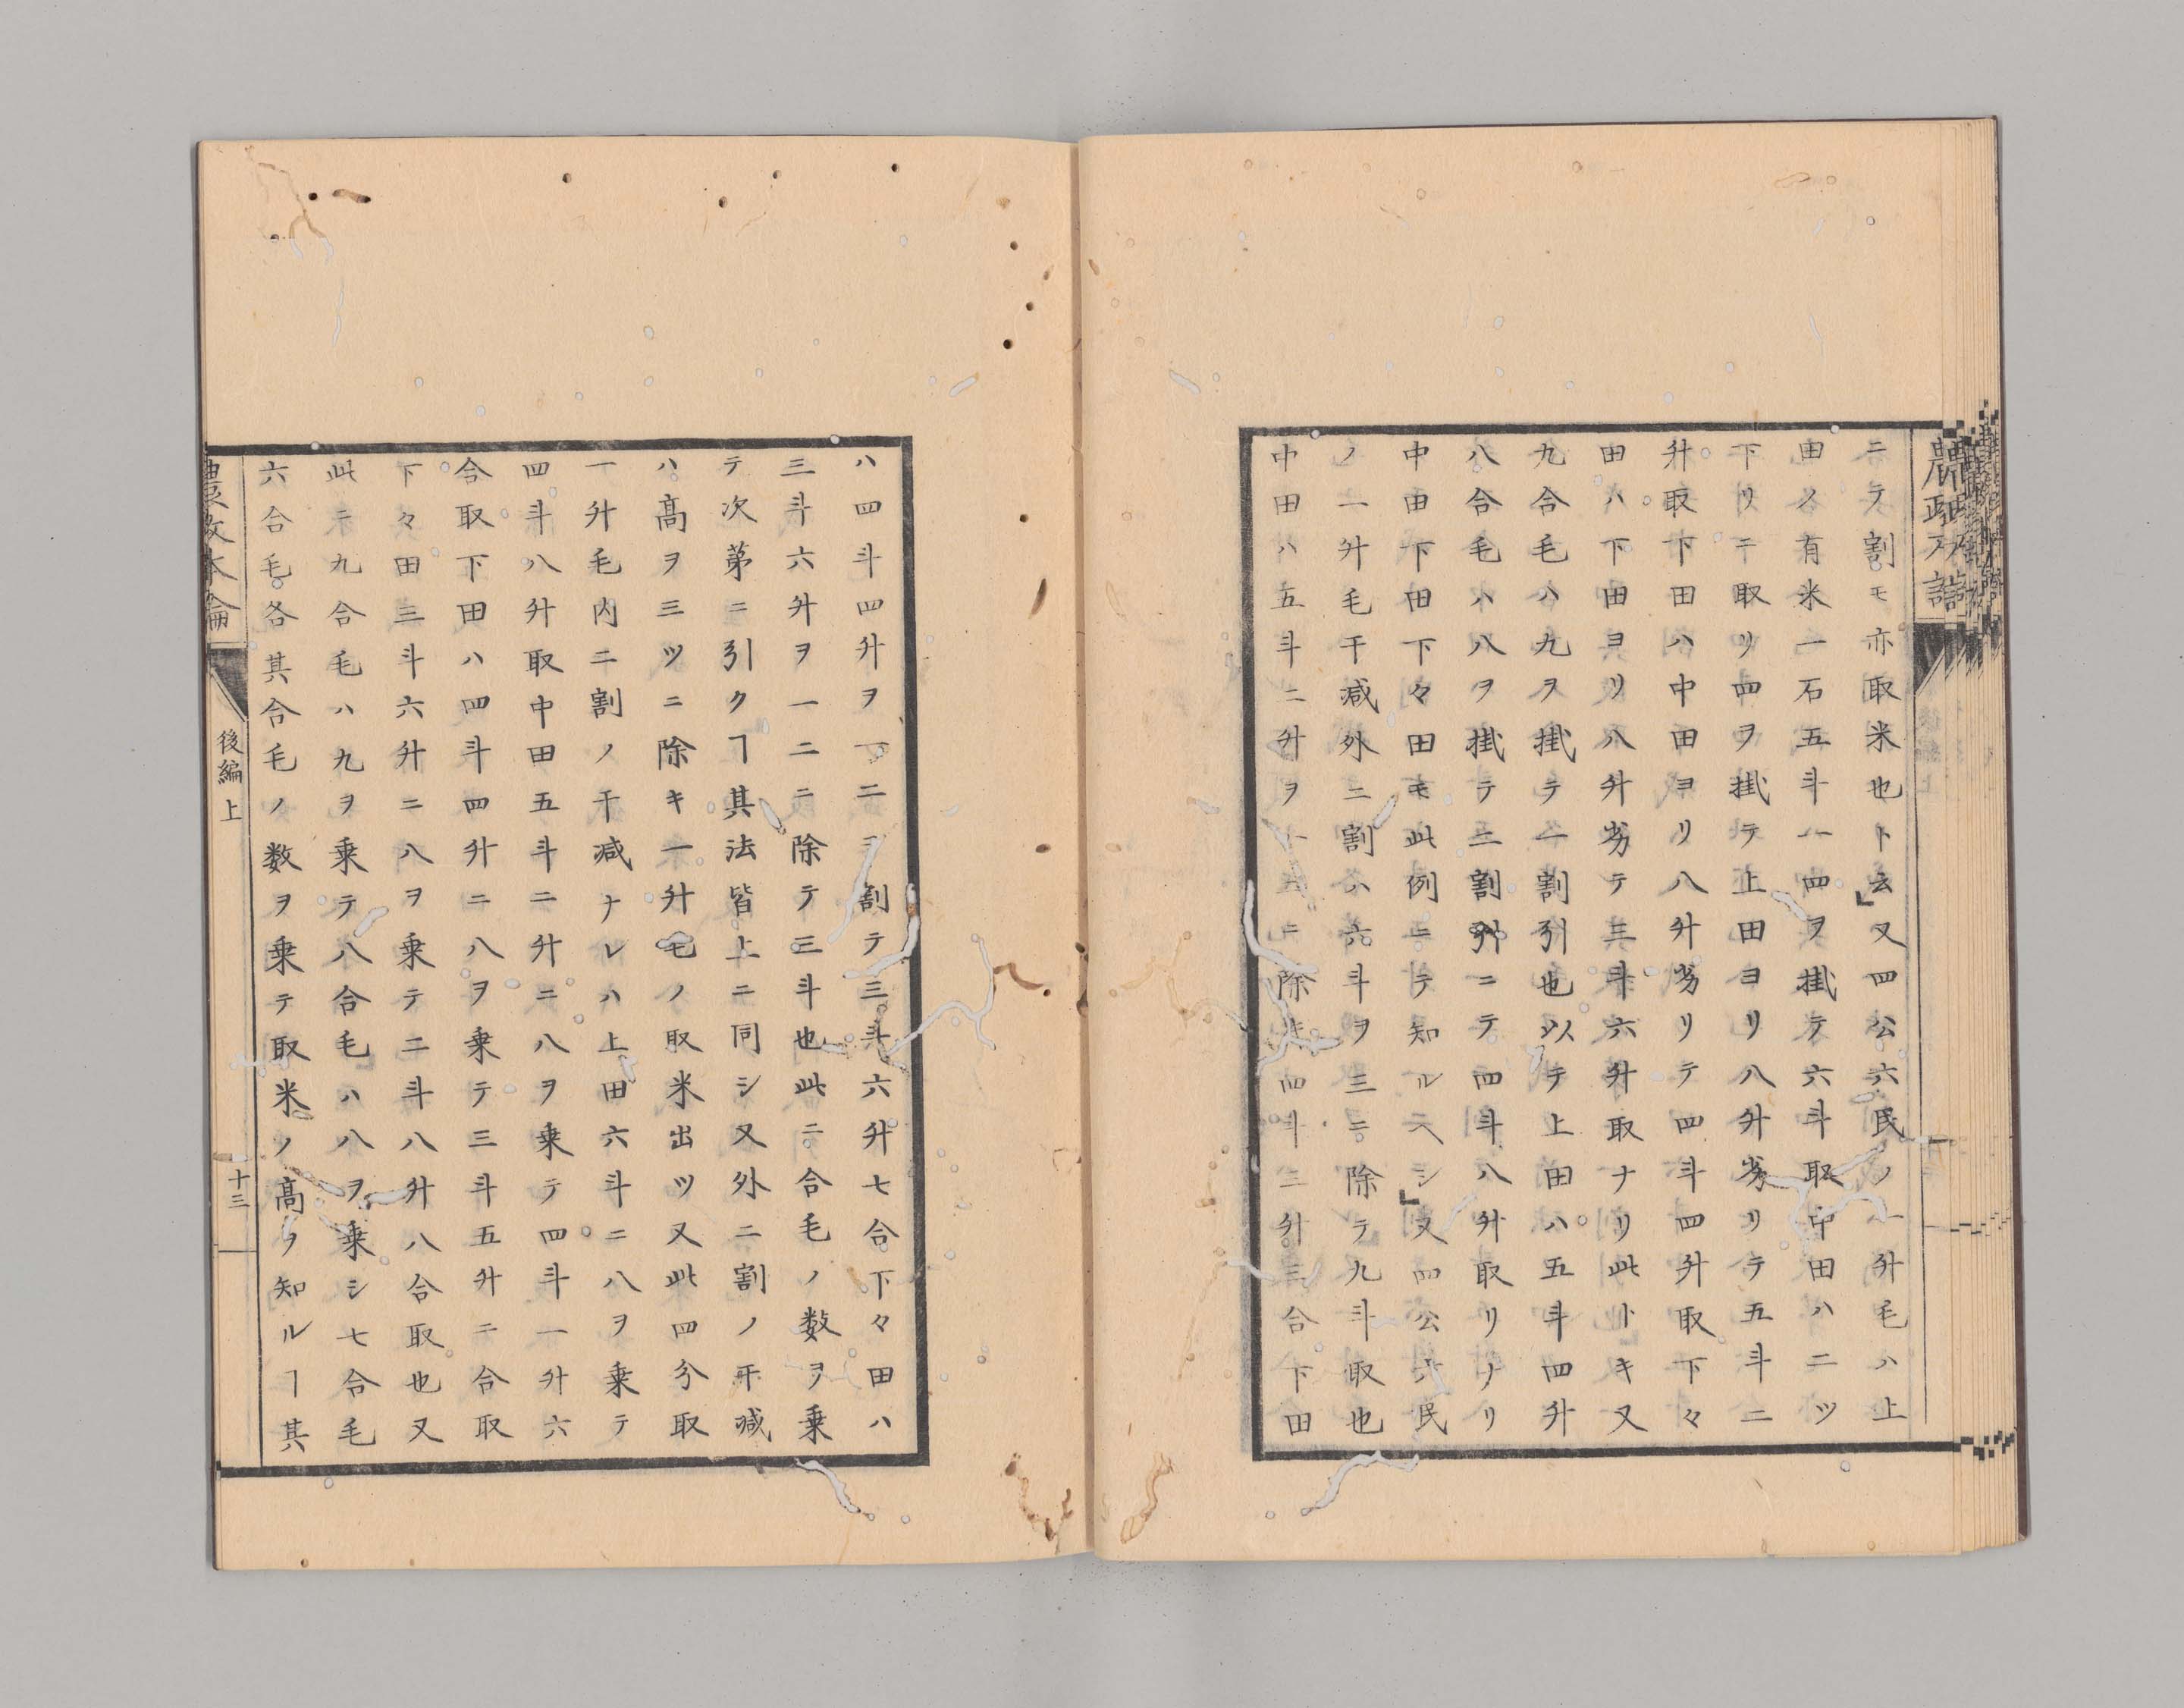 ニテ割モ亦取米也ト云又四公六民ノ一升毛ハ上
田ノ有米一石五斗ニ四ヲ掛テ六斗取中田ハ二ツ
下リニ取リ四ヲ掛テ上田ヨリ八升劣リテ五斗二
升取下田ハ中田ヨリ八升劣リテ四斗四升取下々
田ハ下田ヨリ八升劣テ三斗六升取ナリ此トキ又
九合毛ハ九ヲ掛テ一割引也以テ上田ハ五斗四升
八合毛ハ八ヲ掛テ二割引ニテ四斗八升取リナリ
中田下田下々田モ此例ニテ知ルヘシ又四公六民
ノ一升毛干减外ニ割ハ六斗ヲ三ニ除テ九斗取也
中田ハ五斗二升ヲ一二ニ除キ四斗三升三合下田
ハ四斗四升ヲ一二ニ割テ三斗六升七合下々田ハ
三斗六升ヲ一二ニ除テ三斗也此ニ合毛ノ数ヲ乗
テ次第ニ引クヿ其法皆上ニ同シ又外二割ノ干减
ハ高ヲ三ツニ除キ一升毛ノ取米出ツ又此四分取
一升毛内二割ノ干减ナレハ上田六斗ニ八ヲ乗テ
四斗八升取中田五斗二升ニ八ヲ乗テ四斗一升六
合取下田ハ四斗四升ニ八ヲ乗テ三斗五升二合取
下々田三斗六升ニ八ヲ乗テ二斗八升八合取也又
此ニ九合毛ハ九ヲ乗テ八合毛ハ八ヲ乗シ七合毛
六合毛各其合毛ノ数ヲ乗テ取米ノ高ヲ知ルヿ其
農政本論
後編上
十三